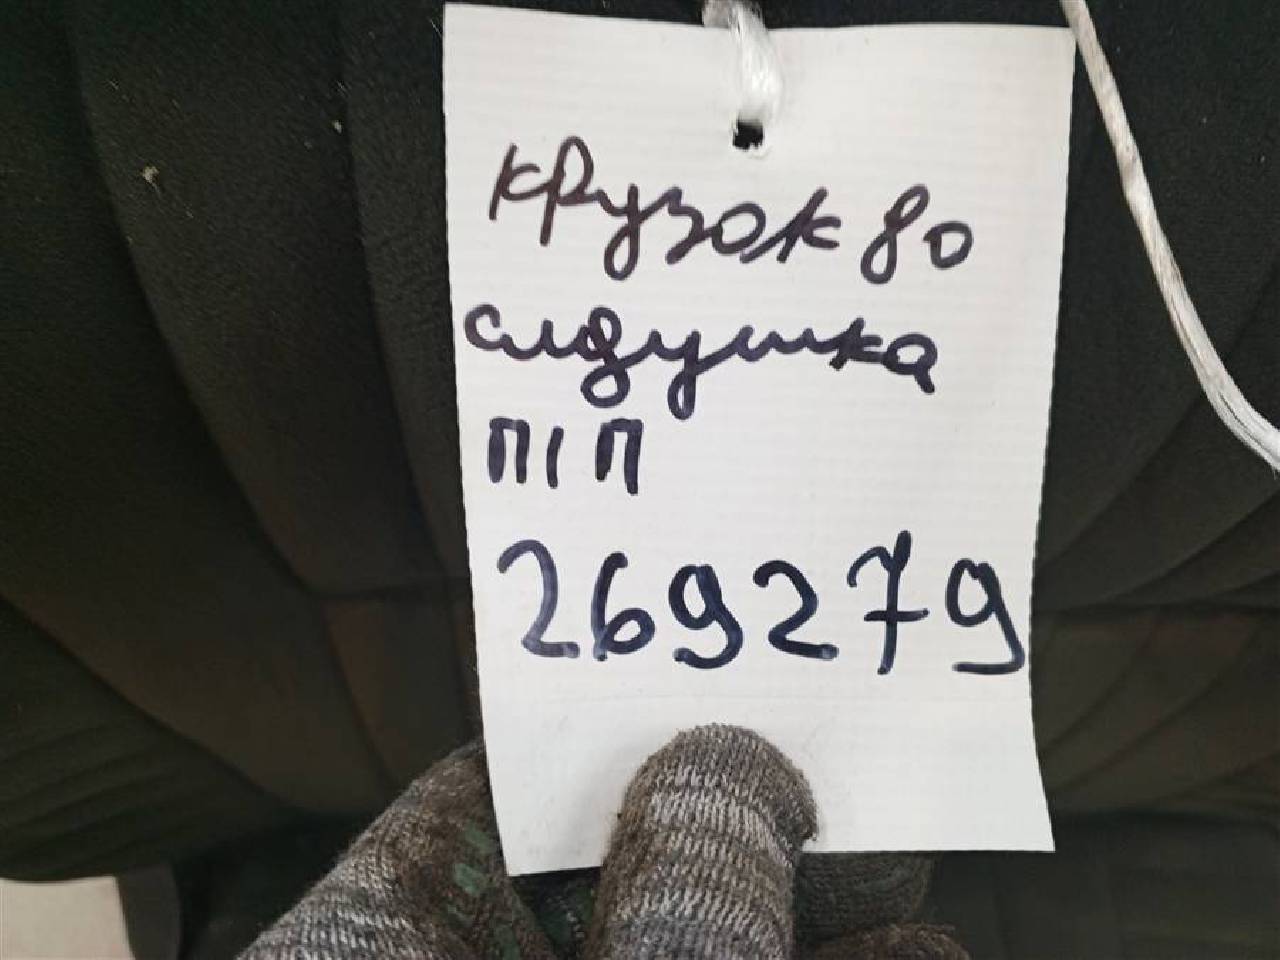 крузок 80
сидушка
П/П
269279